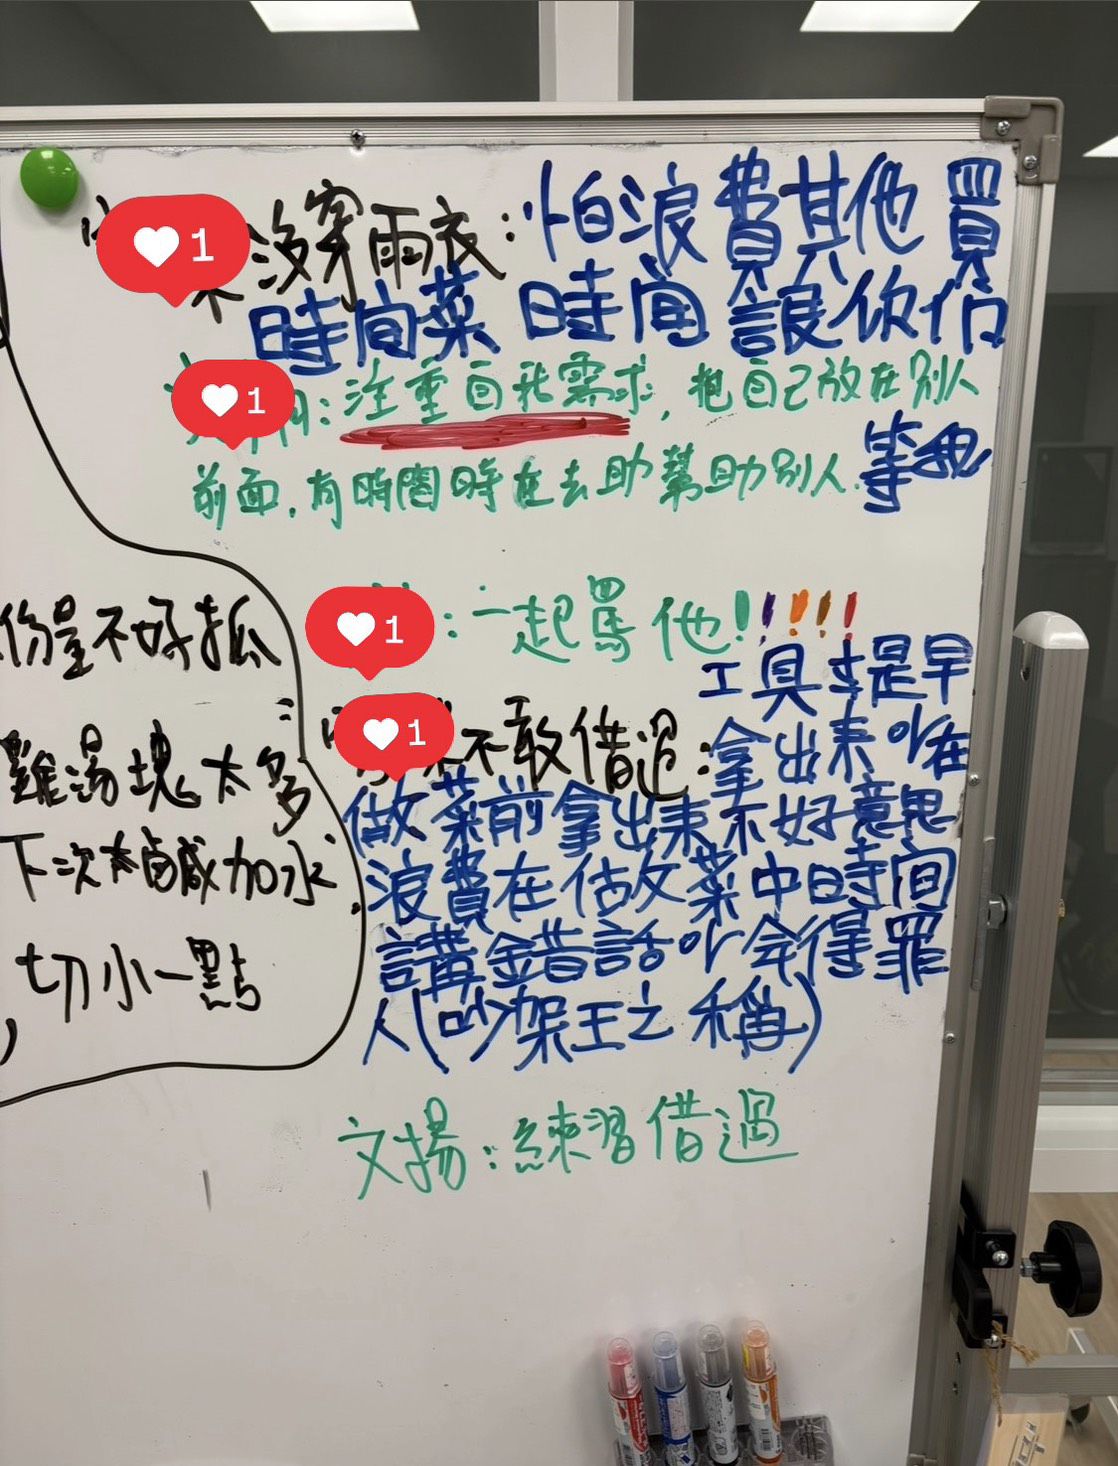 1
沒穿雨衣：怕浪費其他買
時間菜 時間 讓你信
1
：注重自我需求，把自己放在別人
前面，有時間時在去助幫助別人. 等我
1
：一起罵他！！！！！
工具才是早
1
不敢借過：拿出来
做菜前拿出来不好意思
浪費在估做菜中時間
講錯話 会得罪
人(吵架王之稱)
文揚：練習借過
份量不好抓
雞湯塊太多
下次太鹹加水
切小一點